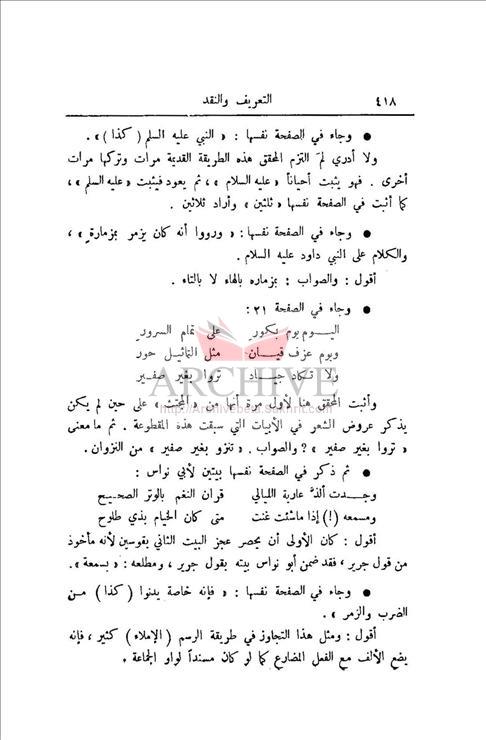 ٤١٨
التعريف والنقد
● وجاء في الصفحة نفسها : « النبي عليه السلم ( كذا ) » .
ولا أدري لمَ التزم المحقق هذه الطريقة القديمة مرات وتركها مرات
أخرى . فهو يثبت أحياناً « عليه السلام » ، ثم يعود فيثبت « عليه السلم » ،
كما أثبت في الصفحة نفسها « ثلثين » وأراد ثلاثين .
● وجاء في الصفحة نفسها : « ورووا أنه كان يزمر بمزمارةٍ » ،
والكلام على النبي داود عليه السلام .
أقول : والصواب : بمزماره بالهاء لا بالتاء .
● وجاء في الصفحة ٢١ :
اليـوم يوم بكورِ على تمام السرورِ
ويوم عزف قيـان مثل التماثيـل حور
ولا تكاد جيـاد تروا بغير صفـير
ARCHIVE
وأثبت المحقق هنا لأول مرة أنها من « المجتث » على حين لم يكن
http://Archivebeta.Sakhrit.com
يذكر عروض الشعر في الأبيات التي سبقت هذه المقطوعة . ثم ما معنى
« تروا بغير صفير » ؟ والصواب . « تنزو بغير صفير » من النزوان .
● ثم ذكر في الصفحة نفسها بيتين لأبي نواس :
وجـدت ألذَّ عارية الليالي قران النغم بالوتر الصحيـح
ومسمعه (!) إذا ماشئت غنت متى كان الخيام بذي طلوح
أقول : كان الأولى أن يحصر عجز البيت الثاني بقوسين لأنه مأخوذ
من قول جرير ، فقد ضمن أبو نواس بيته بقول جرير ، ومطلعه : « بسمعة » .
● وجاء في الصفحة نفسها : « فإنه خاصة يدنوا ( كذا ) مـن
الضرب والزمر » .
أقول : ومثل هذا التجاوز في طريقة الرسم ( الإملاء ) كثير ، فإنه
يضع الألف مع الفعل المضارع كما لو كان مسنداً لواو الجماعة .